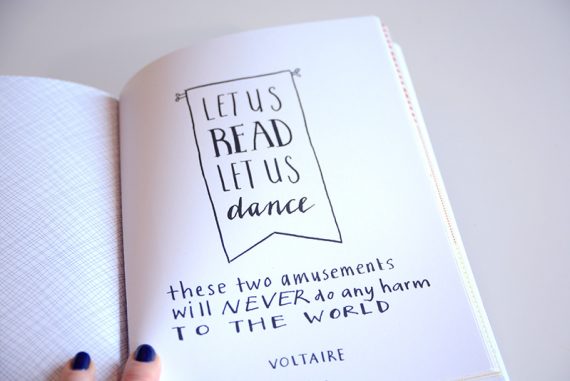 LET US
READ
LET US
dance
these two amusements
will NEVER do any harm
TO THE WORLD
VOLTAIRE